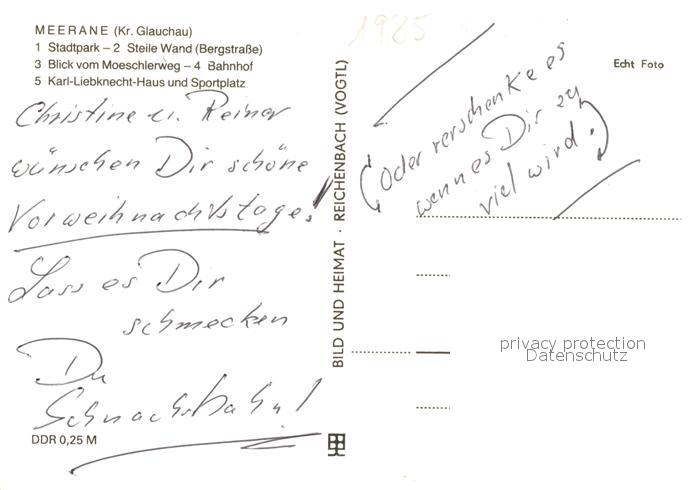 MEERANE (Kr. Glauchau)
1 Stadtpark – 2 Steile Wand (Bergstraße)
3 Blick vom Moeschlerweg – 4 Bahnhof
5 Karl-Liebknecht-Haus und Sportplatz
Christine u. Reiner
wünschen Dir schöne
Vorweihnachtstage!
Lass es Dir
schmecken
Du
DDR 0,25 M
BILD UND HEIMAT · REICHENBACH (VOGTL)
1985
Echt Foto
(Oder verschenke es
wenn es Dir zu
viel wird.)
privacy protection
Datenschutz